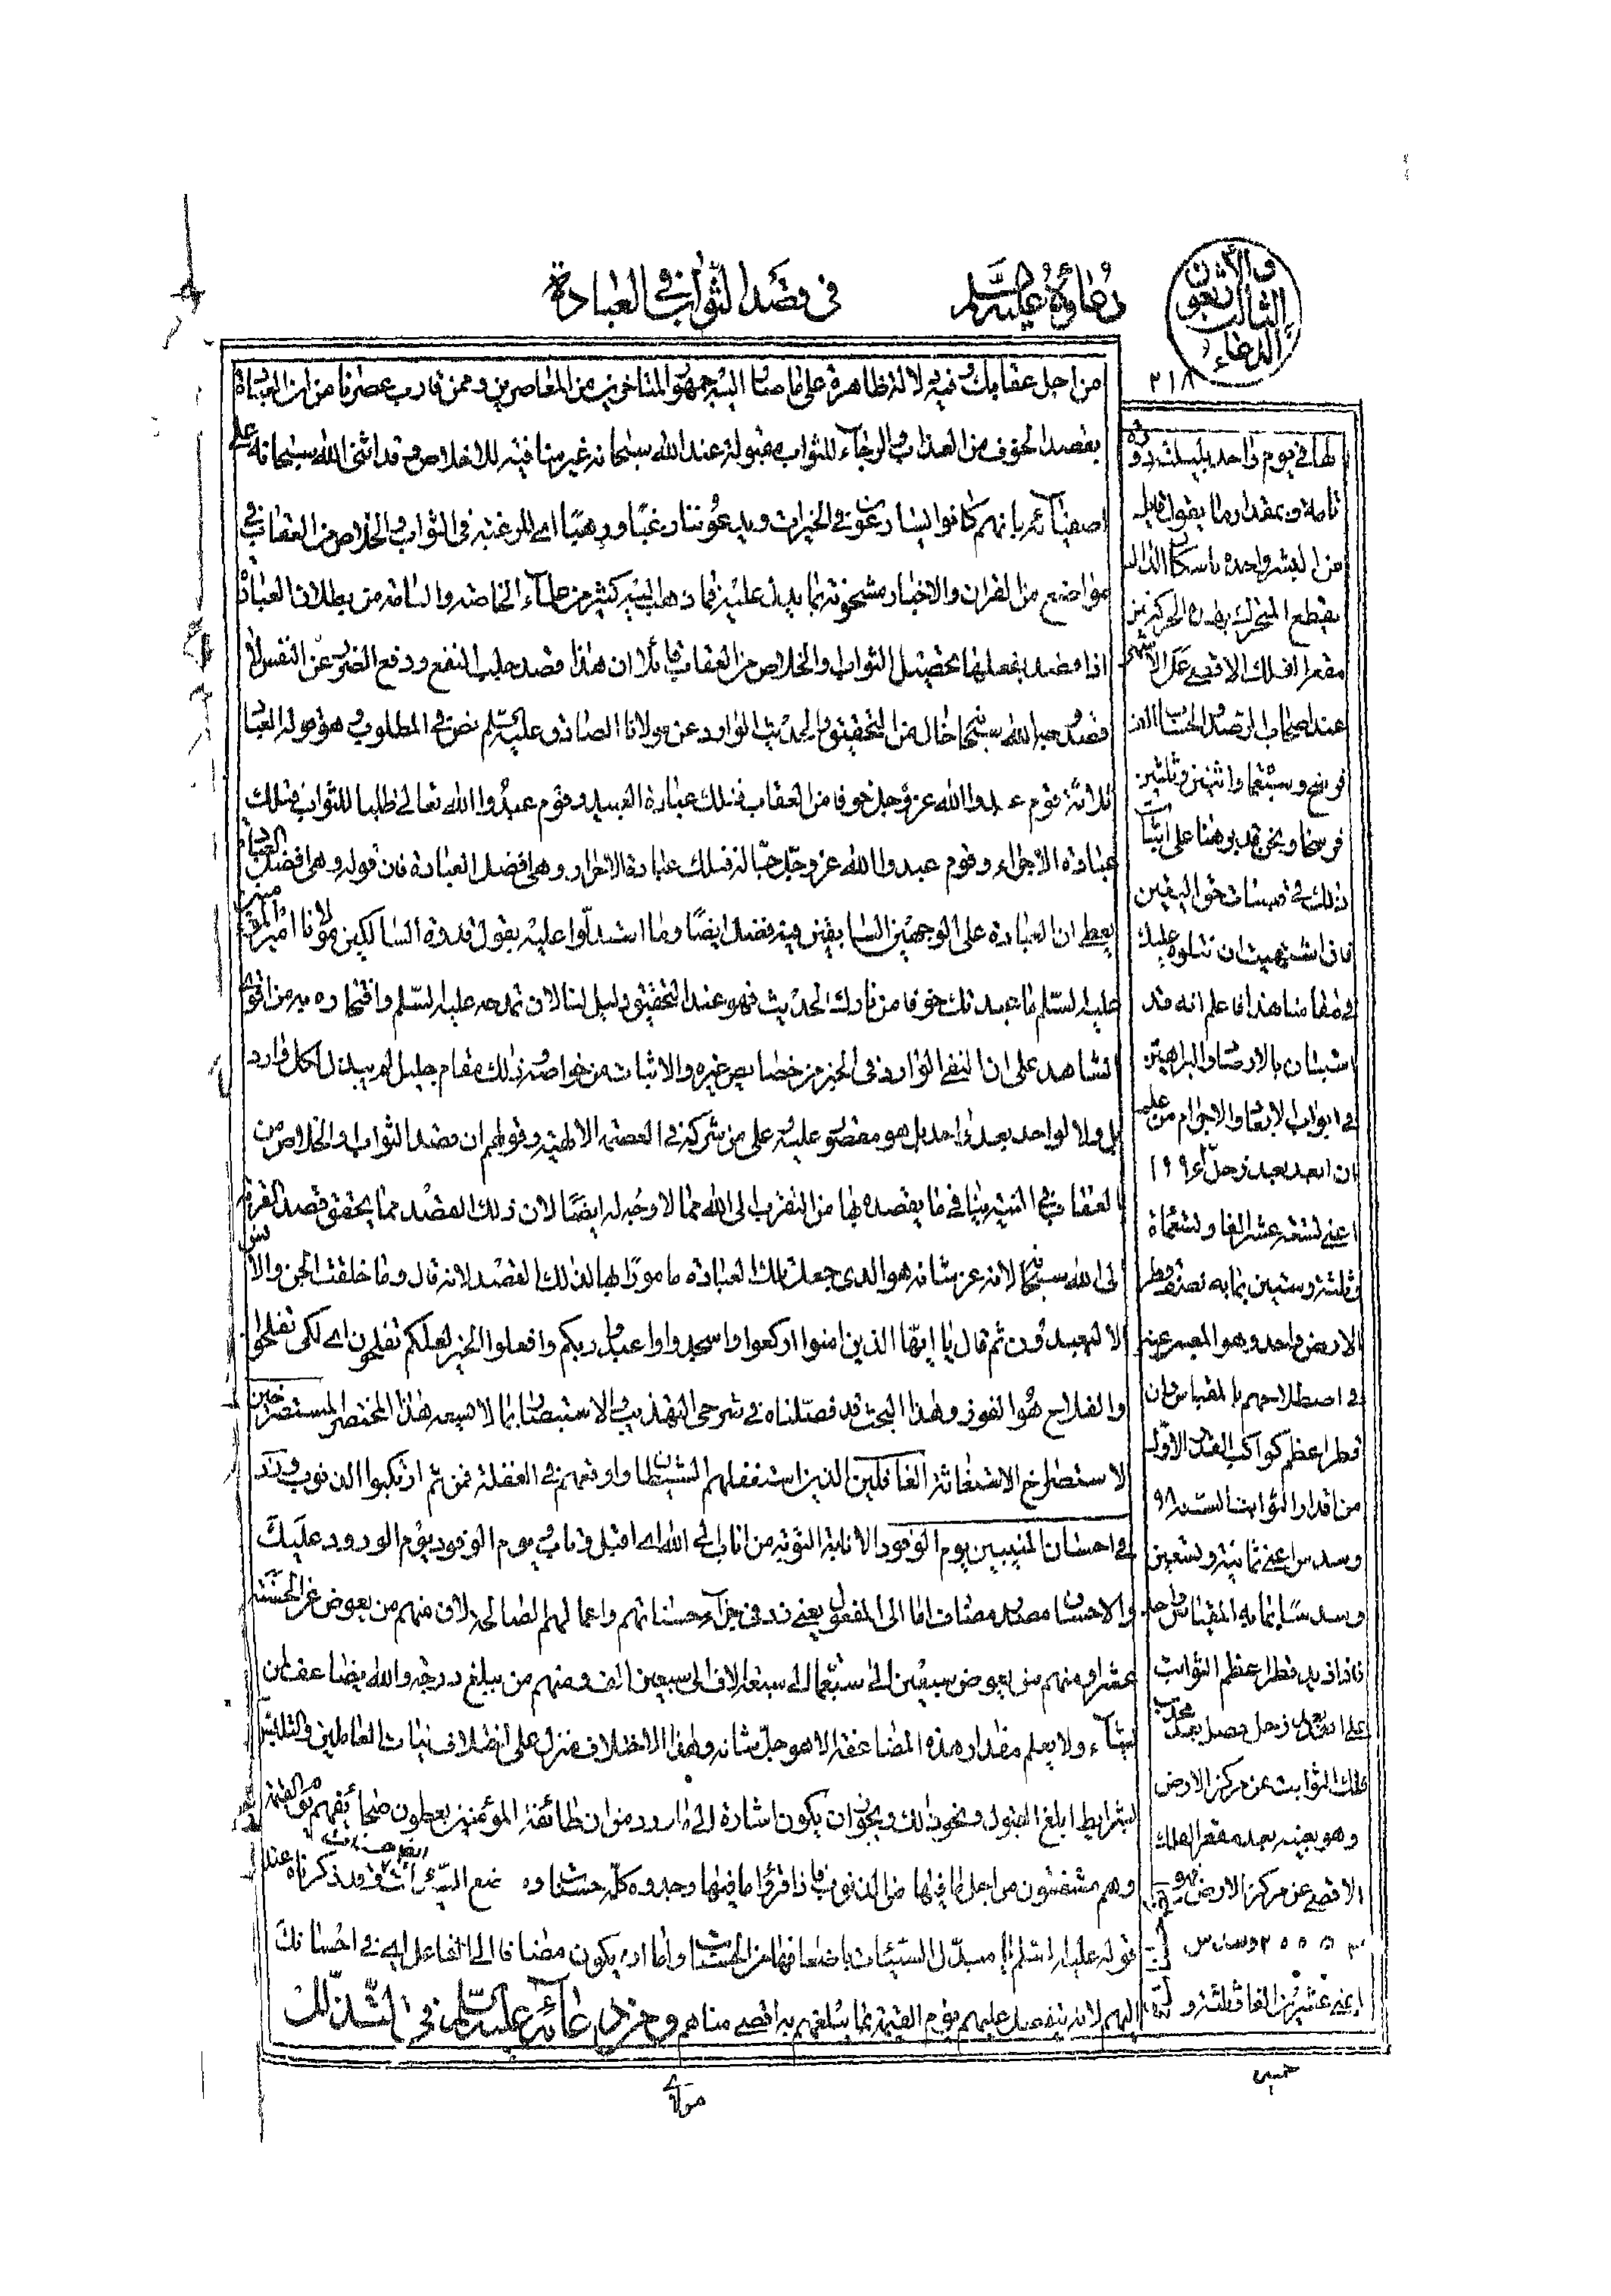 الدعاء الثالث والأربعون
دعاؤه عليه السلم
في قصد الثواب في العبادة
٢١٨
من اجل عقابك وفيه دلالة ظاهرة على ما صار اليه جمهور المتاخرين من المعاصرين وممن قارب عصرنا من ان العبادة
بقصد الخوف من العذاب والرجاء للثواب مقبولة عند الله سبحانه غير منافية للاخلاص وقد اثنى الله سبحانه على
اصفيائه بانهم كانوا يسارعون في الخيرات ويدعوننا رغبا ورهبا اي للرغبة في الثواب والخلاص من العقاب في
مواضع من القران والاخبار مشحونة بما يدل عليه فما ذهب اليه كثير من علماء الخاصة والعامة من بطلان العبادة
اذا قصد بفعلها تحصيل الثواب والخلاص من العقاب قائلا ان هذا قصد جلب النفع ودفع الضرر عن النفس لا
قصد وجه الله سبحانه خال من التحقيق والحديث الوارد عن مولانا الصادق عليه السلم نص في المطلوب وهو قوله العباد
ثلاثة قوم عبدوا الله عز وجل خوفا من العقاب فتلك عبادة العبيد وقوم عبدوا الله تعالى طلبا للثواب فتلك
عبادة الاجراء وقوم عبدوا الله عز وجل حبا له فتلك عبادة الاحرار وهي افضل العبادة فان قوله وهي افضل العبادة
يعطي ان العبادة على الوجهين السابقين فيه فضل ايضا وما استدلوا عليه بقول قدوة السالكين مولانا امير المؤمنين
عليه السلم ما عبدتك خوفا من نارك الحديث فهو عند التحقيق دليل لنا لان تمدحه عليه السلم وافتخاره به من اقوى
الشاهد على ان النفي الوارد في الخبر من خصائص غيره والاثبات من خواصه وذلك مقام جليل لم يبذل لكل وارد
بل ولا لواحد بعد واحد بل هو مقصور عليه وعلى من شركه في العصمة الالهية وقولهم ان قصد الثواب والخلاص من
العقاب في النية ينافي ما يقصد بها من التقرب الى الله مما لا وجه له ايضا لان ذلك القصد مما يحقق قصد القربة
الى الله سبحانه لانه عز شانه هو الذي جعل تلك العبادة مامورا بها لذلك القصد لانه قال وما خلقت الجن والانس
الا ليعبدون ثم قال يا ايها الذين امنوا اركعوا واسجدوا واعبدوا ربكم وافعلوا الخير لعلكم تفلحون اي لكي تفلحوا
والفلاح هو الفوز وهذا البحث قد فصلناه في شرحي التهذيب والاستبصار بما لا يسعه هذا المختصر المستصرخين
الاستصراخ الاستغاثة الغافلين الذين استغفلهم الشيطان واوقعهم في الغفلة فمن ثم ارتكبوا الذنوب وزد
في احسان المنيبين يوم الوفود الانابة التوبة من اناب الى الله اي اقبل وتاب يوم الوفود يوم الورود عليك
والاحسان مصدر مضاف اما الى المفعول يعني زد في جزاء حسناتهم واعمالهم الصالحة لان منهم من يعوض عن الحسنة
عشرا ومنهم من يعوض سبعين الى سبعمائة الى سبعة الاف الى سبعين الف ومنهم من يبلغ درجة والله يضاعف لمن
يشاء ولا يعلم مقدار هذه المضاعفة الا هو جل شانه وهذا الاختلاف منزل على اختلاف نيات العاملين والتلبس
بشرايط ابلغ القبول ونحو ذلك ويجوز ان يكون اشارة الى ما ورد من ان طائفة المؤمنين يعطون صحائفهم يوم القيمة
وهم مشفقون من اجل ما فيها من الذنوب فاذا قرؤا ما فيها وجدوه كله حسنات وقد ذكرناه عند
قوله عليه السلم يا مبدل السيئات باضعافها من الحسنات واما ان يكون مضافا الى الفاعل اي في احسانك
اليهم لانه يتفضل عليهم يوم القيمة بما يبلغهم به اقصى مناهم ومن دعائه عليه السلم في التذلل
لها في يوم واحد بليلته دورة
تامة وبمقدار ما يقول قايل
من البشر واحد باسكان الدال
يقطع المتحرك بهذه الحركة من
مقعر الفلك الاقصى على الاشهر
عند اصحاب الرصد والحساب الف
فرسخ وسبعمائة واثنين وثلثين
فرسخا ونحن قد برهنا على اثبات
ذلك في قبسات حق اليقين
فان اشتهيت ان نتلوه عليك
في مقامنا هذا فاعلم انه قد
استبان بالارصاد والبراهين
في ابواب الابعاد والاجرام من علم
ان ابعد بعد زحل ١٩٩٦٣
اعني تسعة عشر الفا وتسعمائة
وثلثة وستين بما به نصف قطر
الارض واحد وهو المعبر عنه
في اصطلاحهم بالمقياس وان
قطر اعظم كواكب القدر الاول
من اقدار الثوابت الستة ٩٨
وسدس اعني ثمانية وتسعين
وسدسا بما به المقياس واحد
فاذا زيد قطر اعظم الثوابت
على ابعد بعد زحل حصل بعد محدب
فلك الثوابت عن مركز الارض
وهو بعينه بعد مقعر الفلك
الاقصى عن مركز الارض فهو
اعني عشرين الفا وثلثة و
خمسين
مولاي